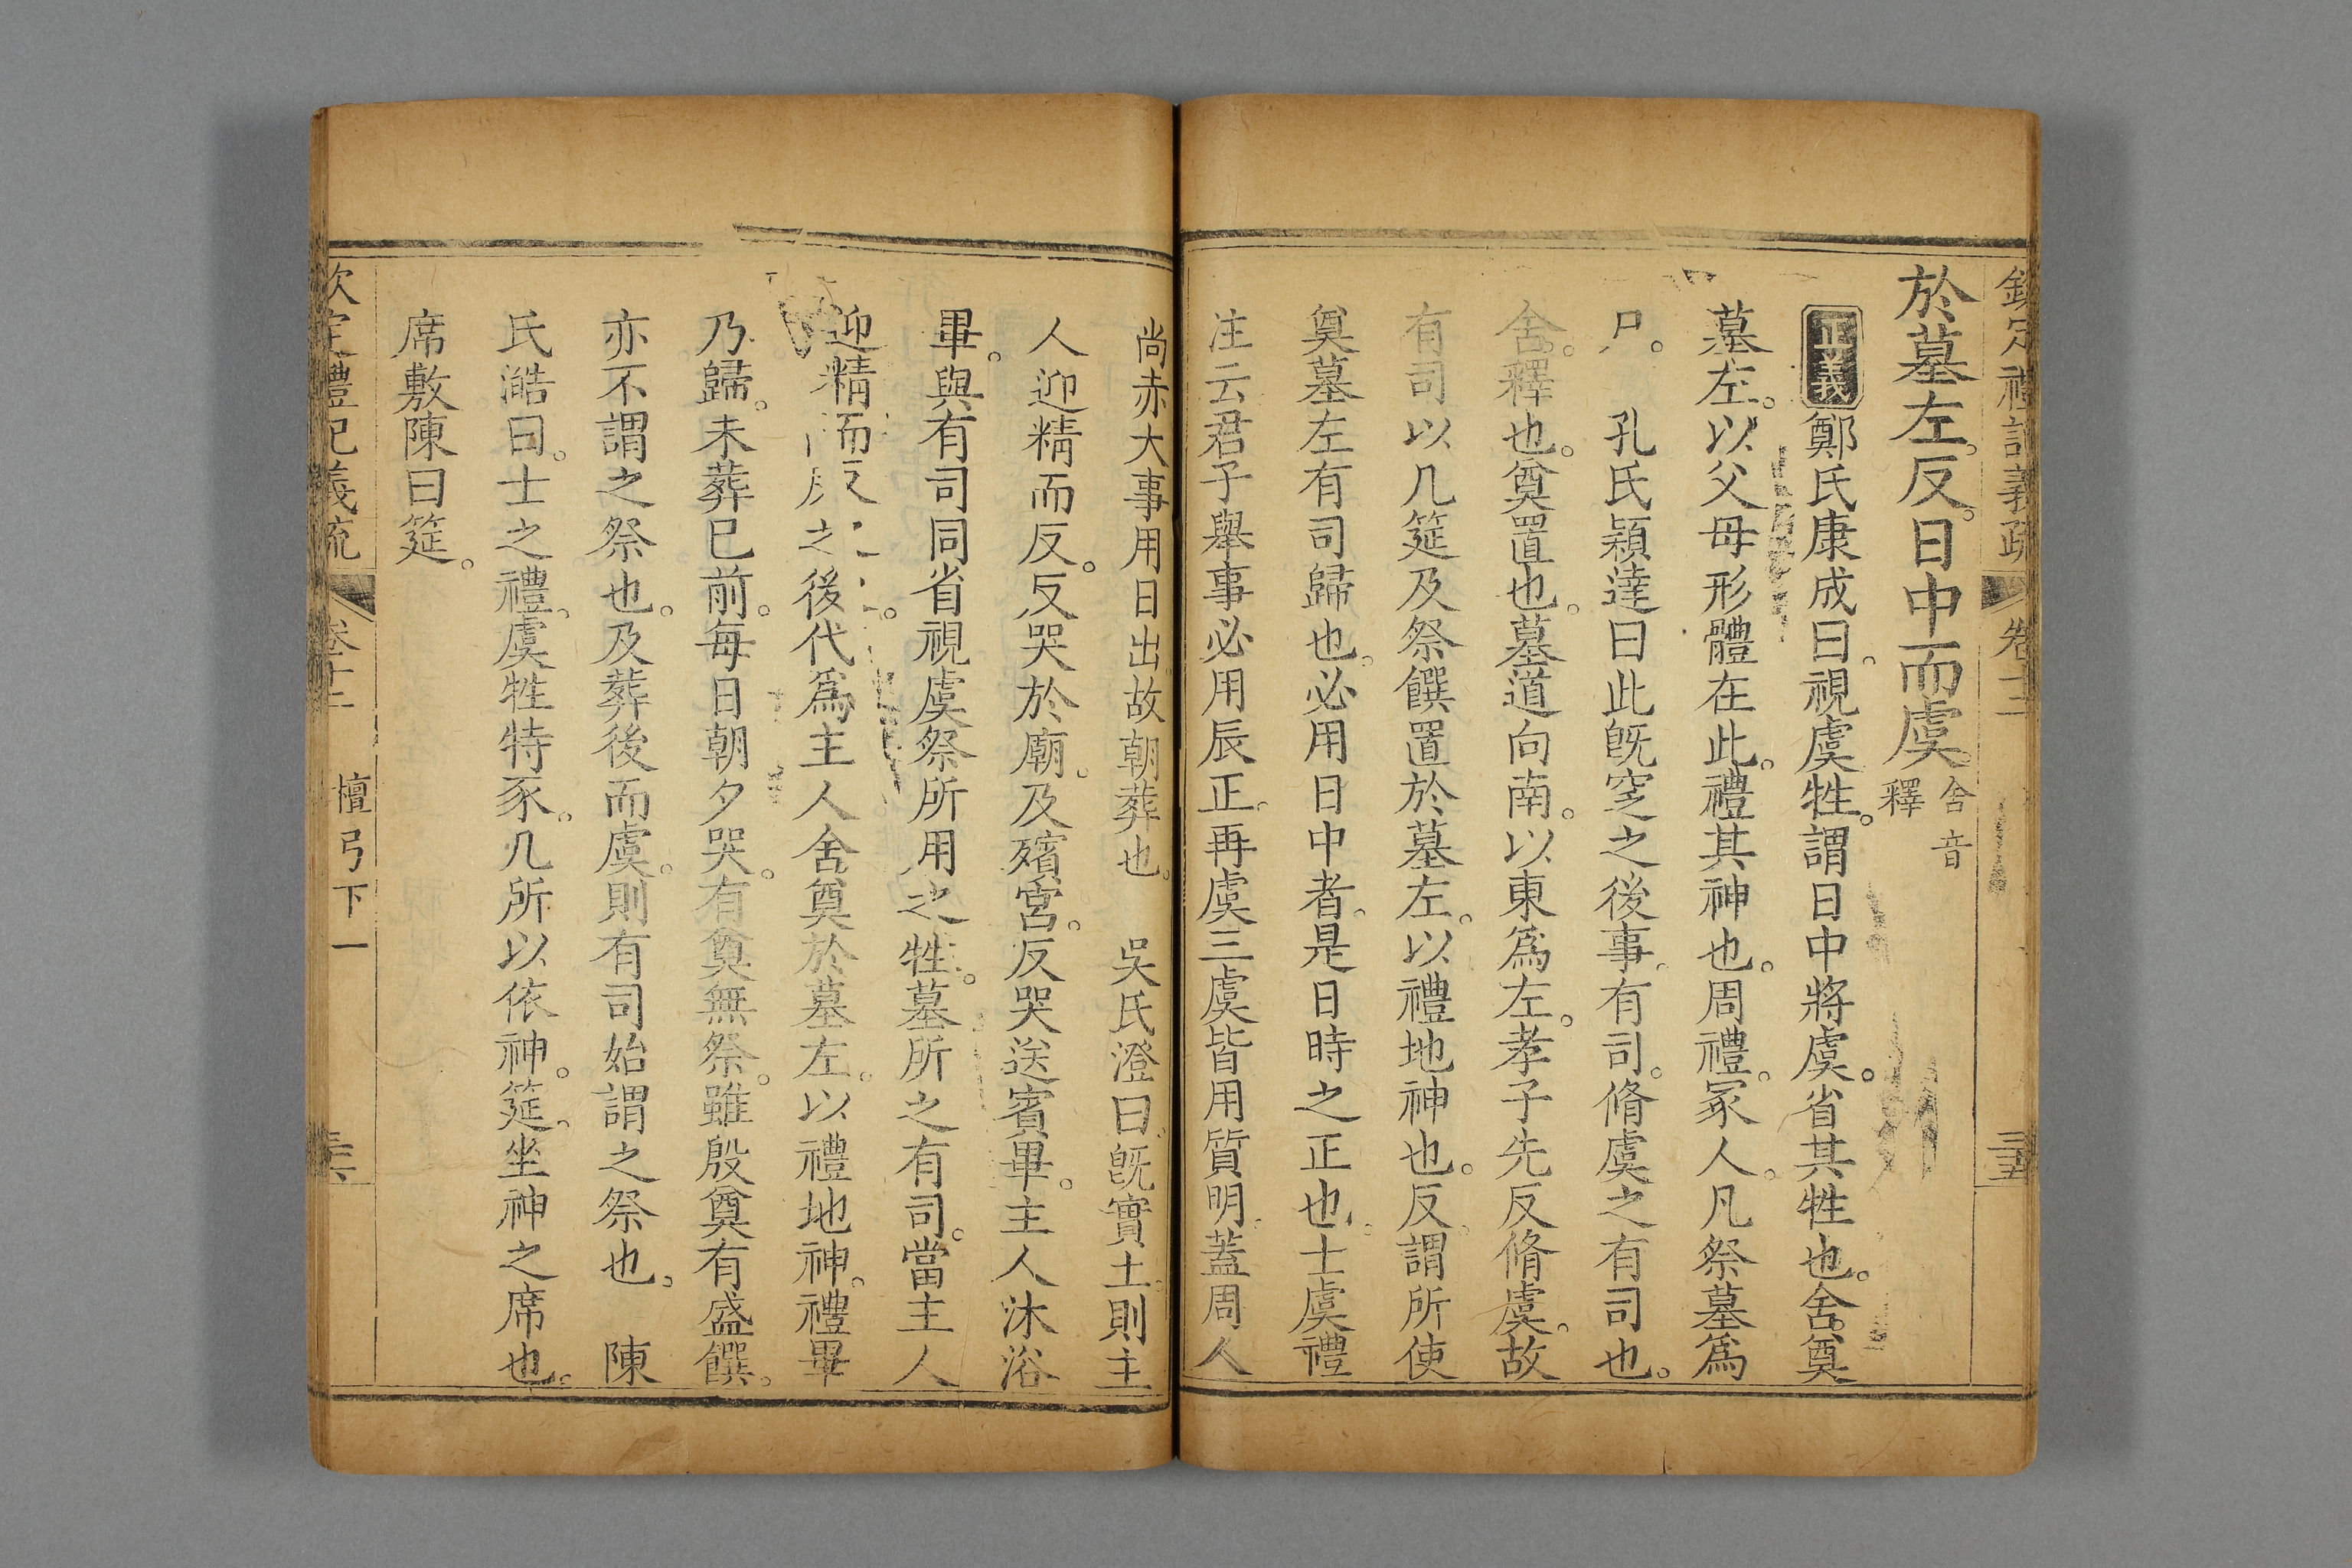 欽定禮記義疏 卷十二 三五
於墓左。反。日中而虞。舍音釋
正義鄭氏康成曰。視虞牲。謂日中將虞。省其牲也。舍奠
墓左。以父母形體在此。禮其神也。周禮。冢人。凡祭墓爲
尸。 孔氏穎達曰此旣窆之後事。有司。脩虞之有司也。
舍。釋也。奠置也。墓道向南。以東爲左。孝子先反脩虞。故
有司以几筵及祭饌置於墓左。以禮地神也。反謂所使
奠墓左有司歸也。必用日中者。是日時之正也。士虞禮
注云君子舉事必用辰正。再虞三虞皆用質明。蓋周人
尚赤大事用日出。故朝葬也。 吳氏澄曰。旣實土。則主
人迎精而反。反哭於廟。及殯宮。反哭送賓畢。主人沐浴
畢。與有司同省視虞祭所用之牲。墓所之有司。當主人
迎精而反之後代爲主人舍奠於墓左。以禮地神。禮畢
乃歸。未葬已前。每日朝夕哭。有奠無祭。雖殷奠有盛饌。
亦不謂之祭也。及葬後而虞。則有司始謂之祭也。 陳
氏澔曰。士之禮。虞牲特豕。几所以依神。筵。坐神之席也。
席敷陳曰筵。
欽定禮記義疏 卷十二 檀弓下一 三六